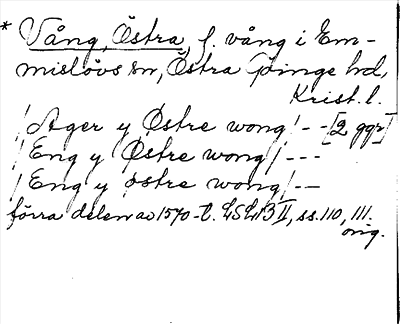 * Vång, Östra, f. vång i Em-
mislövs sn, Östra Göinge hd,
Krist. l.
/Ager y Østre wong/ - - [2 ggr]
/Eng y Østre wong/ - - -
/Eng y østre wong/ - -
förra delen av 1570-t. LSLB II, ss. 110, 111.
orig.